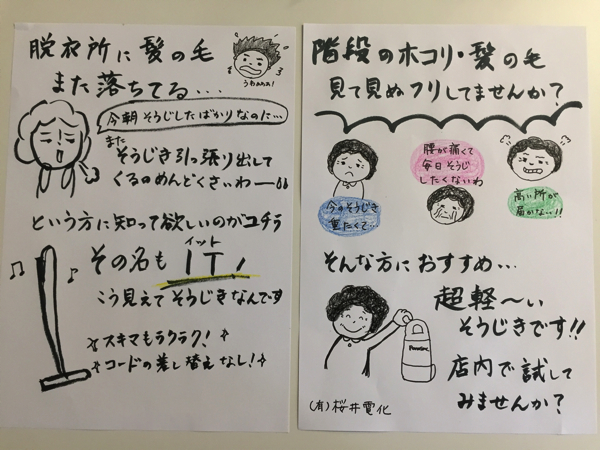 脱衣所に髪の毛
また落ちてる...
うわぁぁぁ!
今朝そうじしたばかりなのに...
また
そうじき引っ張り出して
くるのめんどくさいわー
という方に知って欲しいのがコチラ
その名も
イット
IT!
こう見えてそうじきなんです
スキマもラクラク!
コードの差し替えなし!
階段のホコリ・髪の毛
見て見ぬフリしてませんか?
今のそうじき
重たくて...
腰が痛くて
毎日そうじ
したくないわ
高い所が
届かない!!
そんな方におすすめ...
超軽〜い
そうじきです!!
店内で試して
みませんか?
Panasonic
(有)桜井電化